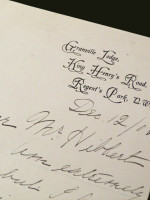 Granville Lodge,
King Henry's Road,
Regent's Park, N.W.
Dec 12
Mr Hibbert
am extremely